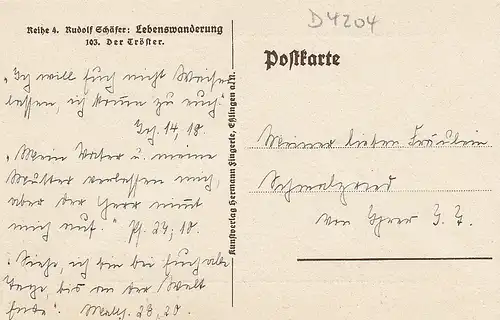 D4204
Reihe 4. Rudolf Schäfer: Lebenswanderung
103. Der Tröster.
Postkarte
„Ich will Euch nicht Waisen
lassen, ich komme zu euch."
Joh. 14, 18.
„Mein Vater u. meine
Mutter verlassen mich,
aber der Herr nimmt
mich auf." Ps. 27, 10.
„Siehe, ich bin bei Euch alle
Tage, bis an der Welt
Ende". Matth. 28, 20.
Kunstverlag Hermann Zingerle, Eßlingen a.N.
Meiner lieben Fräulein
Schmalzried
von Ihrer